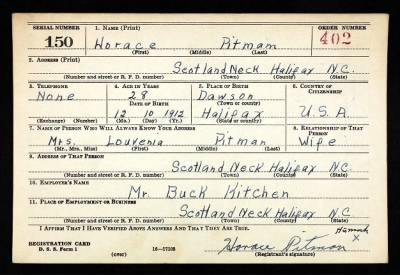 SERIAL NUMBER 1. NAME (Print) ORDER NUMBER
150 Horace Pitman 402
(First) (Middle) (Last)
2. ADDRESS (Print)
Scotland Neck Halifax N.C.
(Number and street or R. F. D. number) (Town) (County) (State)
3. TELEPHONE 4. AGE IN YEARS 5. PLACE OF BIRTH 6. COUNTRY OF CITIZENSHIP
None 28 Dawson
DATE OF BIRTH
12 10 1912 Halifax U.S.A.
(Exchange) (Number) (Mo.) (Day) (Yr.) (State or country)
7. NAME OF PERSON WHO WILL ALWAYS KNOW YOUR ADDRESS 8. RELATIONSHIP OF THAT PERSON
Mrs. Louvenia Pitman Wife
(Mr., Mrs., Miss) (First) (Middle) (Last)
9. ADDRESS OF THAT PERSON
Scotland Neck Halifax N.C.
(Number and street or R. F. D. number) (Town) (County) (State)
10. EMPLOYER'S NAME
Mr. Buck Kitchen
11. PLACE OF EMPLOYMENT OR BUSINESS
Scotland Neck Halifax N.C.
(Number and street or R. F. D. number) (Town) (County) (State)
I AFFIRM THAT I HAVE VERIFIED ABOVE ANSWERS AND THAT THEY ARE TRUE.
X
REGISTRATION CARD Horace Pitman
D. S. S. Form 1 (over) 16—17105 (Registrant's signature)